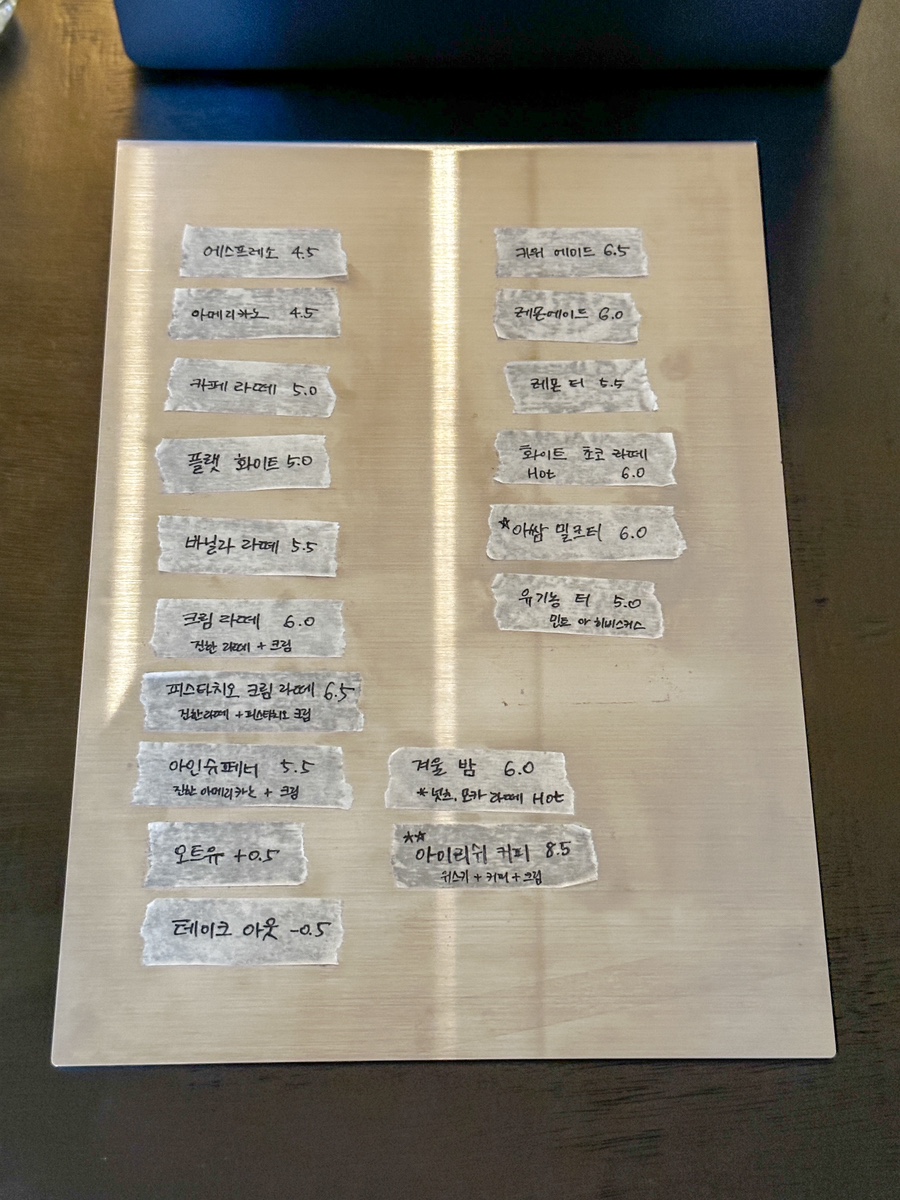 에스프레소 4.5
아메리카노 4.5
카페 라떼 5.0
플랫 화이트 5.0
바닐라 라떼 5.5
크림 라떼 6.0
진한 라떼 + 크림
피스타치오 크림 라떼 6.5
진한라떼 + 피스타치오 크림
아인슈페너 5.5
진한 아메리카노 + 크림
오트유 +0.5
테이크 아웃 -0.5
키위 에이드 6.5
레몬에이드 6.0
레몬 티 5.5
화이트 초코 라떼
Hot 6.0
☆아쌈 밀크티 6.0
유기농 티 5.0
민트 or 히비스커스
겨울 밤 6.0
*넛츠, 모카 라떼 Hot
☆☆
아이리쉬 커피 8.5
위스키 + 커피 + 크림